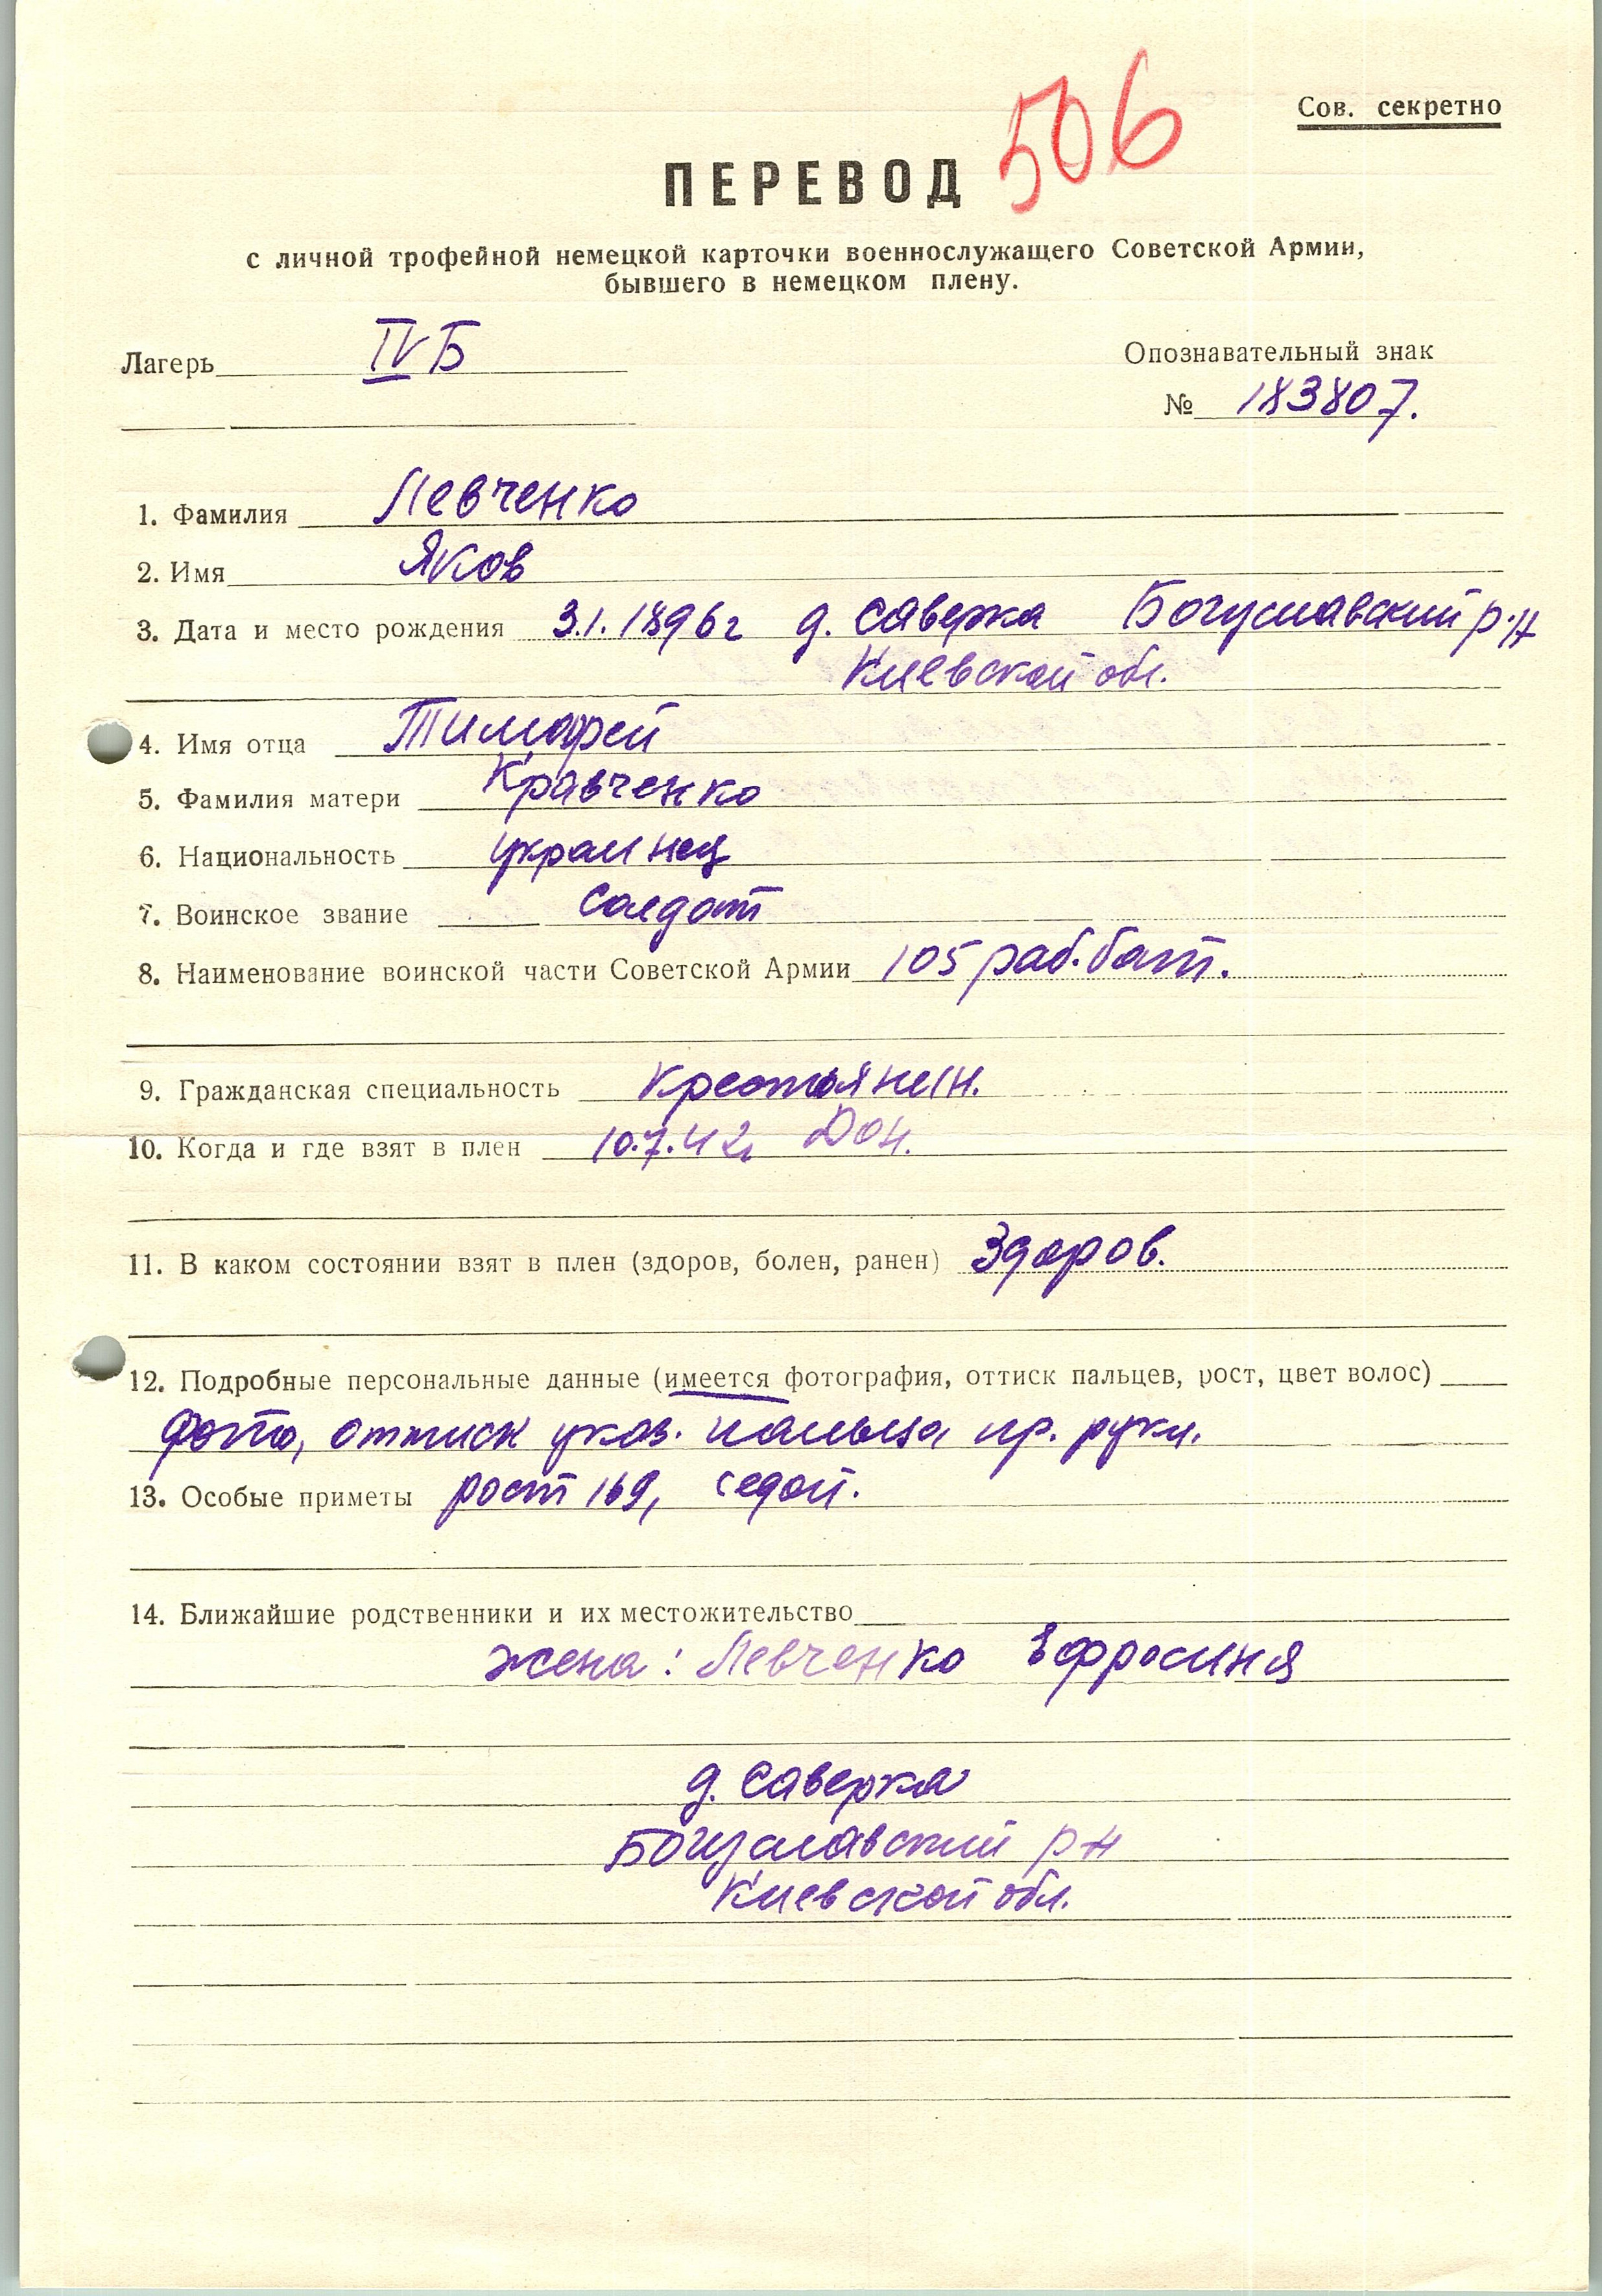 506
Сов. секретно
ПЕРЕВОД
с личной трофейной немецкой карточки военнослужащего Советской Армии,
бывшего в немецком плену.
Лагерь IV Б
Опознавательный знак
№ 183807.
1. Фамилия Левченко
2. Имя Яков
3. Дата и место рождения 3.1.1896г д. Саверка Богуславский р-н
Киевской обл.
4. Имя отца Тимофей
5. Фамилия матери Кравченко
6. Национальность украинец
7. Воинское звание Солдат
8. Наименование воинской части Советской Армии 105 раб. бат.
9. Гражданская специальность крестьянин.
10. Когда и где взят в плен 10.7.42г Дон.
11. В каком состоянии взят в плен (здоров, болен, ранен) Здоров.
12. Подробные персональные данные (имеется фотография, оттиск пальцев, рост, цвет волос)
фото, оттиск указ. пальца пр. руки.
13. Особые приметы рост 169, седой.
14. Ближайшие родственники и их местожительство
жена: Левченко Ефросиня
д. Саверка
Богуславский р-н
Киевской обл.